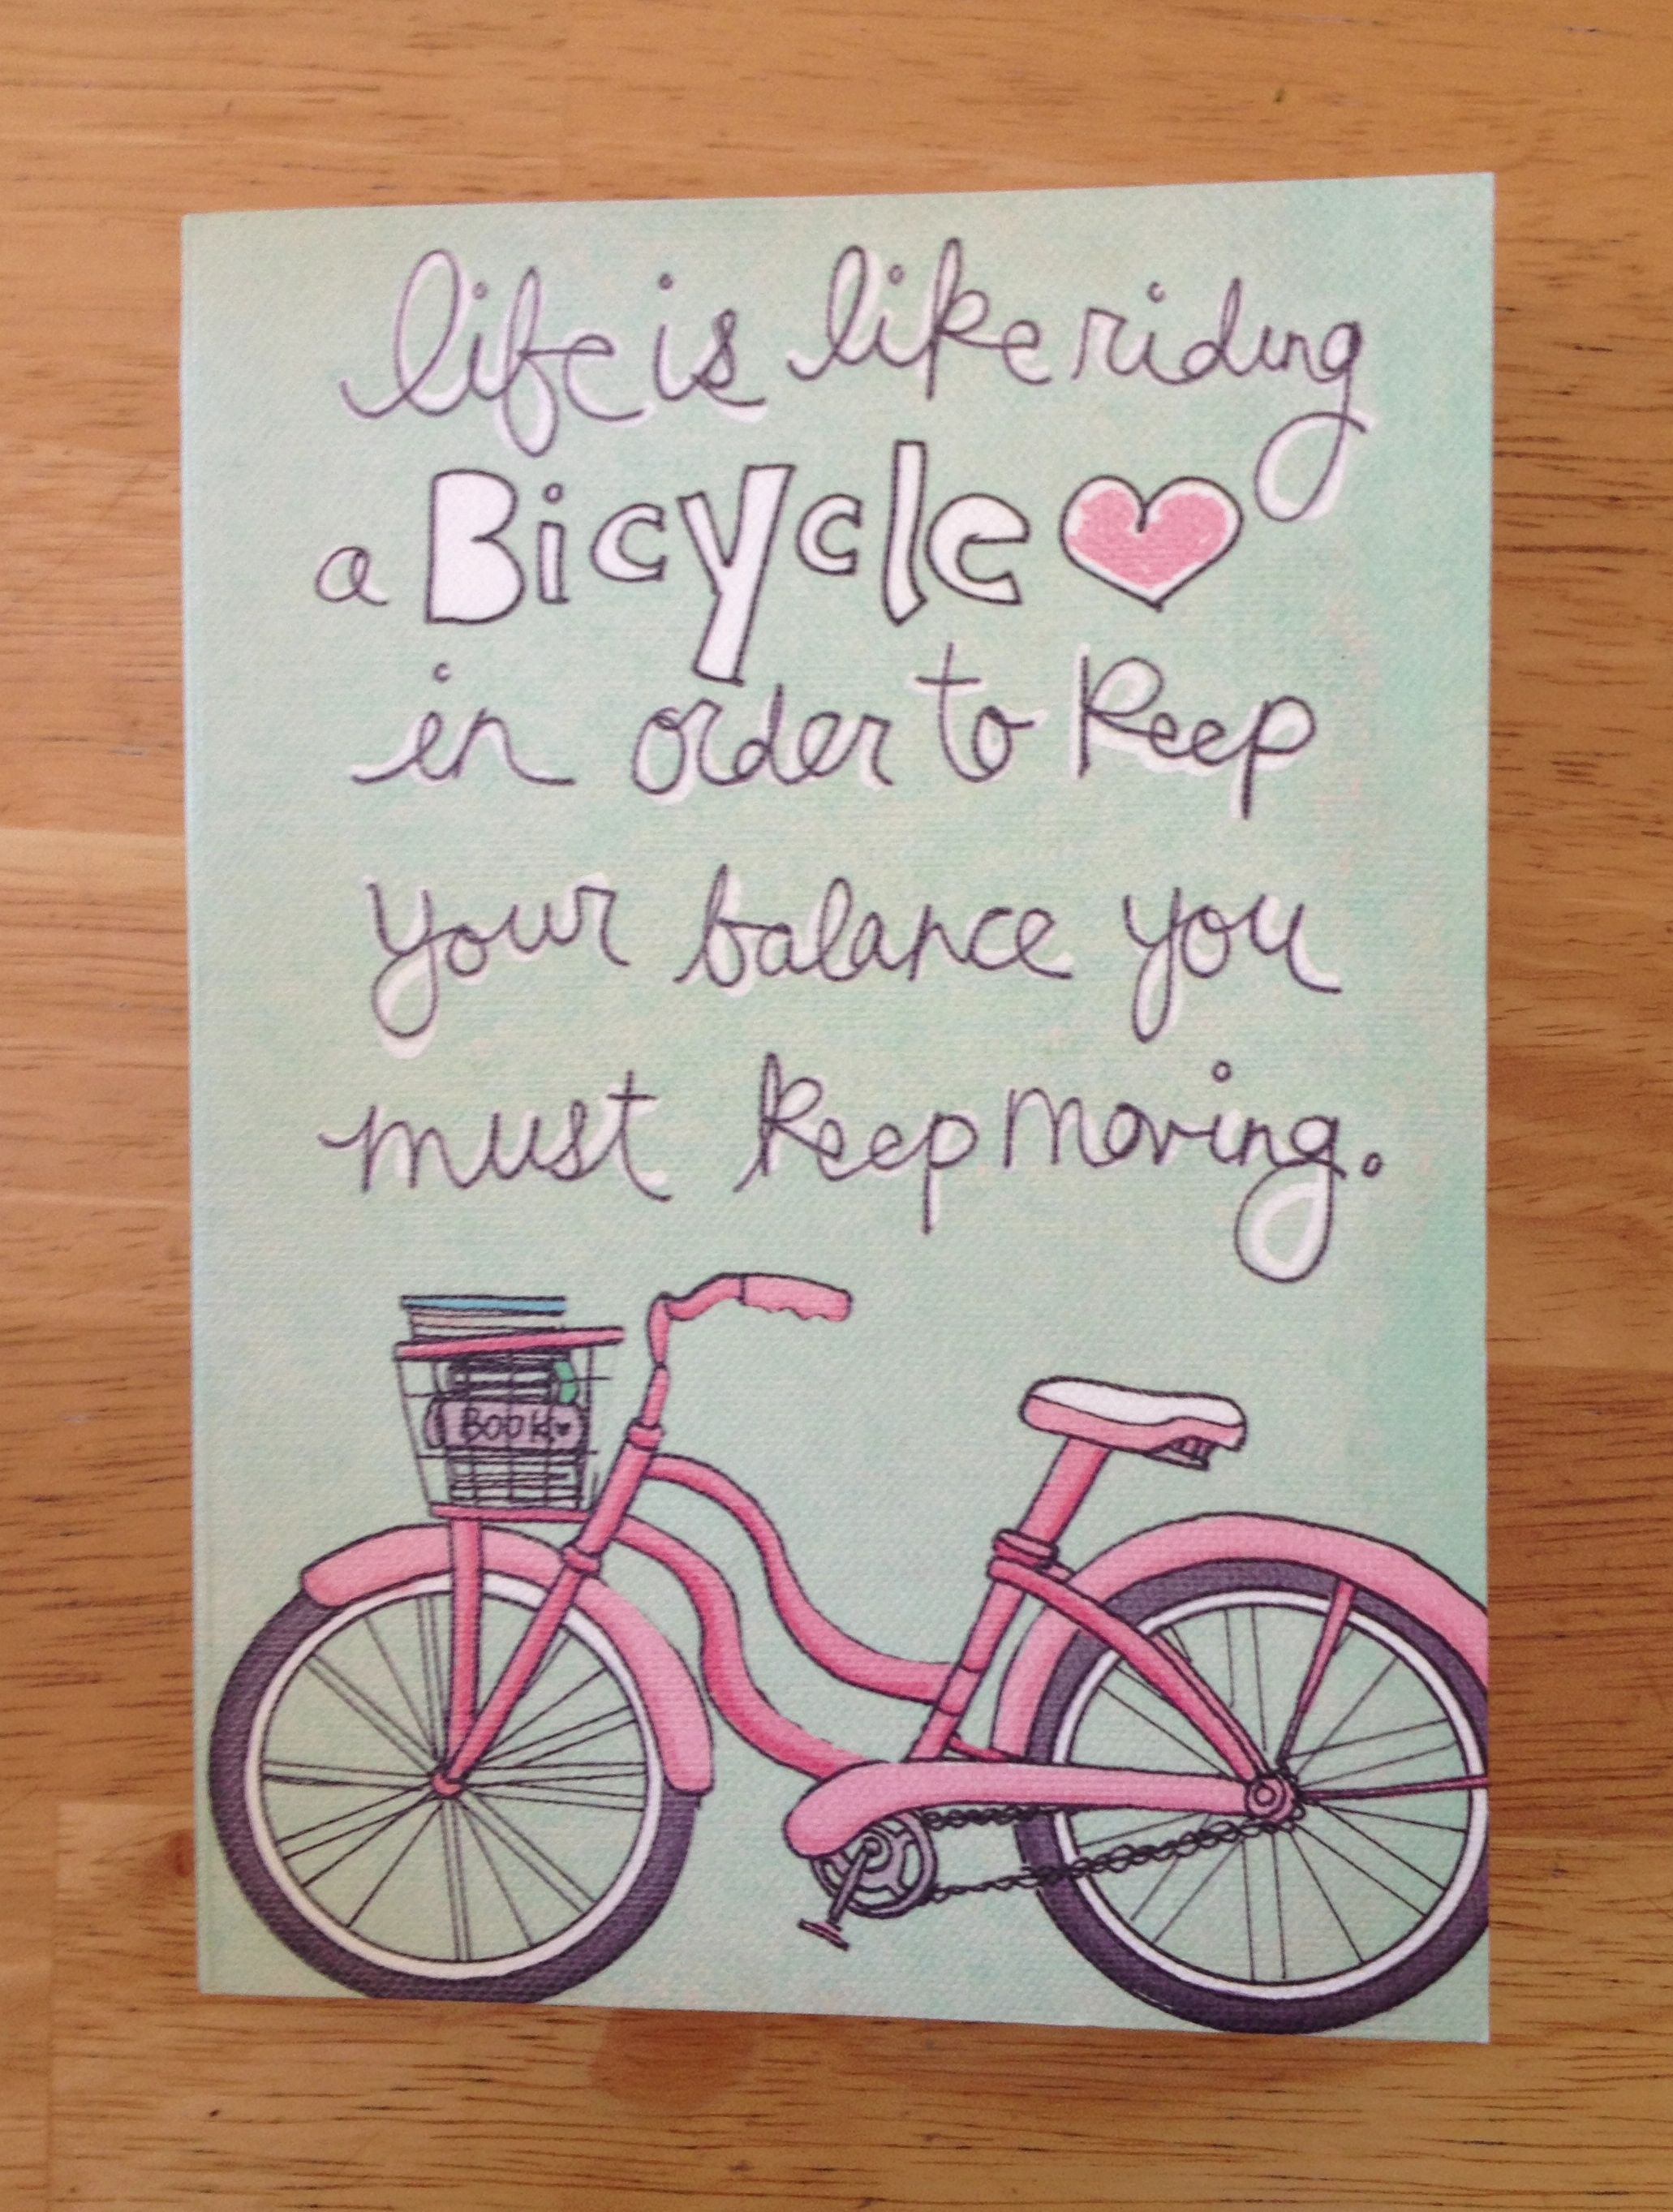 life is like riding
a Bicycle
in order to keep
your balance you
must keep moving.
BOOK